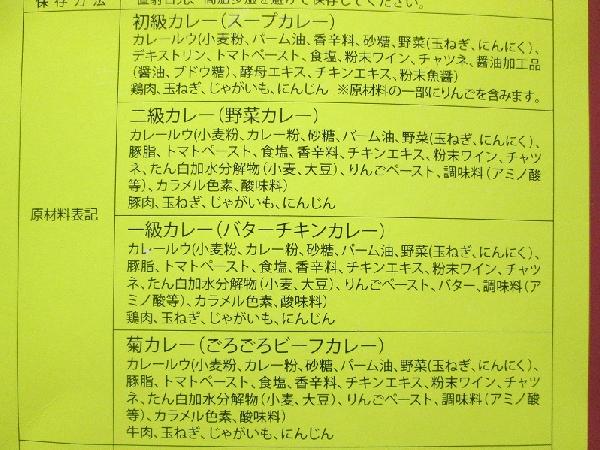 保存方法
初級カレー(スープカレー)
カレールウ(小麦粉、パーム油、香辛料、砂糖、野菜(玉ねぎ、にんにく)、
デキストリン、トマトペースト、食塩、粉末ワイン、チャツネ、醤油加工品
(醤油、ブドウ糖)、酵母エキス、チキンエキス、粉末魚醤)
鶏肉、玉ねぎ、じゃがいも、にんじん ※原材料の一部にりんごを含みます。
二級カレー(野菜カレー)
カレールウ(小麦粉、カレー粉、砂糖、パーム油、野菜(玉ねぎ、にんにく)、
豚脂、トマトペースト、食塩、香辛料、チキンエキス、粉末ワイン、チャツ
ネ、たん白加水分解物(小麦、大豆)、りんごペースト、調味料(アミノ酸
等)、カラメル色素、酸味料)
豚肉、玉ねぎ、じゃがいも、にんじん
原材料表記
一級カレー(バターチキンカレー)
カレールウ(小麦粉、カレー粉、砂糖、パーム油、野菜(玉ねぎ、にんにく)、
豚脂、トマトペースト、食塩、香辛料、チキンエキス、粉末ワイン、チャツ
ネ、たん白加水分解物(小麦、大豆)、りんごペースト、バター、調味料(ア
ミノ酸等)、カラメル色素、酸味料)
鶏肉、玉ねぎ、じゃがいも、にんじん
菊カレー(ごろごろビーフカレー)
カレールウ(小麦粉、カレー粉、砂糖、パーム油、野菜(玉ねぎ、にんにく)、
豚脂、トマトペースト、食塩、香辛料、チキンエキス、粉末ワイン、チャツ
ネ、たん白加水分解物(小麦、大豆)、りんごペースト、調味料(アミノ酸
等)、カラメル色素、酸味料)
牛肉、玉ねぎ、じゃがいも、にんじん